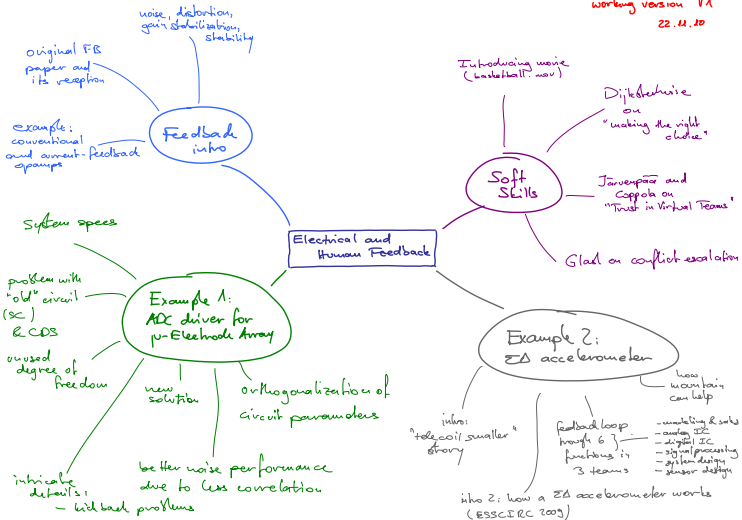 working version V1
22.11.10
noise, distortion,
gain stabilization,
stability
original FB
paper and
its reception
example:
conventional
and current-feedback
opamps
Feedback
intro
Introducing movie
(basketball.mov)
Dijksterhuis
on
"making the right
choice"
Soft
Skills
Järvenpää and
Coppola on
"Trust in Virtual Teams"
Glasl on conflict escalation
Electrical and
Human Feedback
System specs
problem with
"old" circuit
(SC)
& CDS
unused
degree of
freedom
Example 1:
ADC driver for
μ-Electrode Array
new
solution
orthogonalization of
circuit parameters
intricate
details:
- kickback problems
better noise performance
due to less correlation
Example 2:
ΣΔ accelerometer
how
maintain
can help
intro:
"telecoil smaller"
story
feedback loop
trough 6
functions in
3 teams
- marketing & sales
- analog IC
- digital IC
- signal processing
- system design
- sensor design
intro 2: how a ΣΔ accelerometer works
(ESSCIRC 2009)